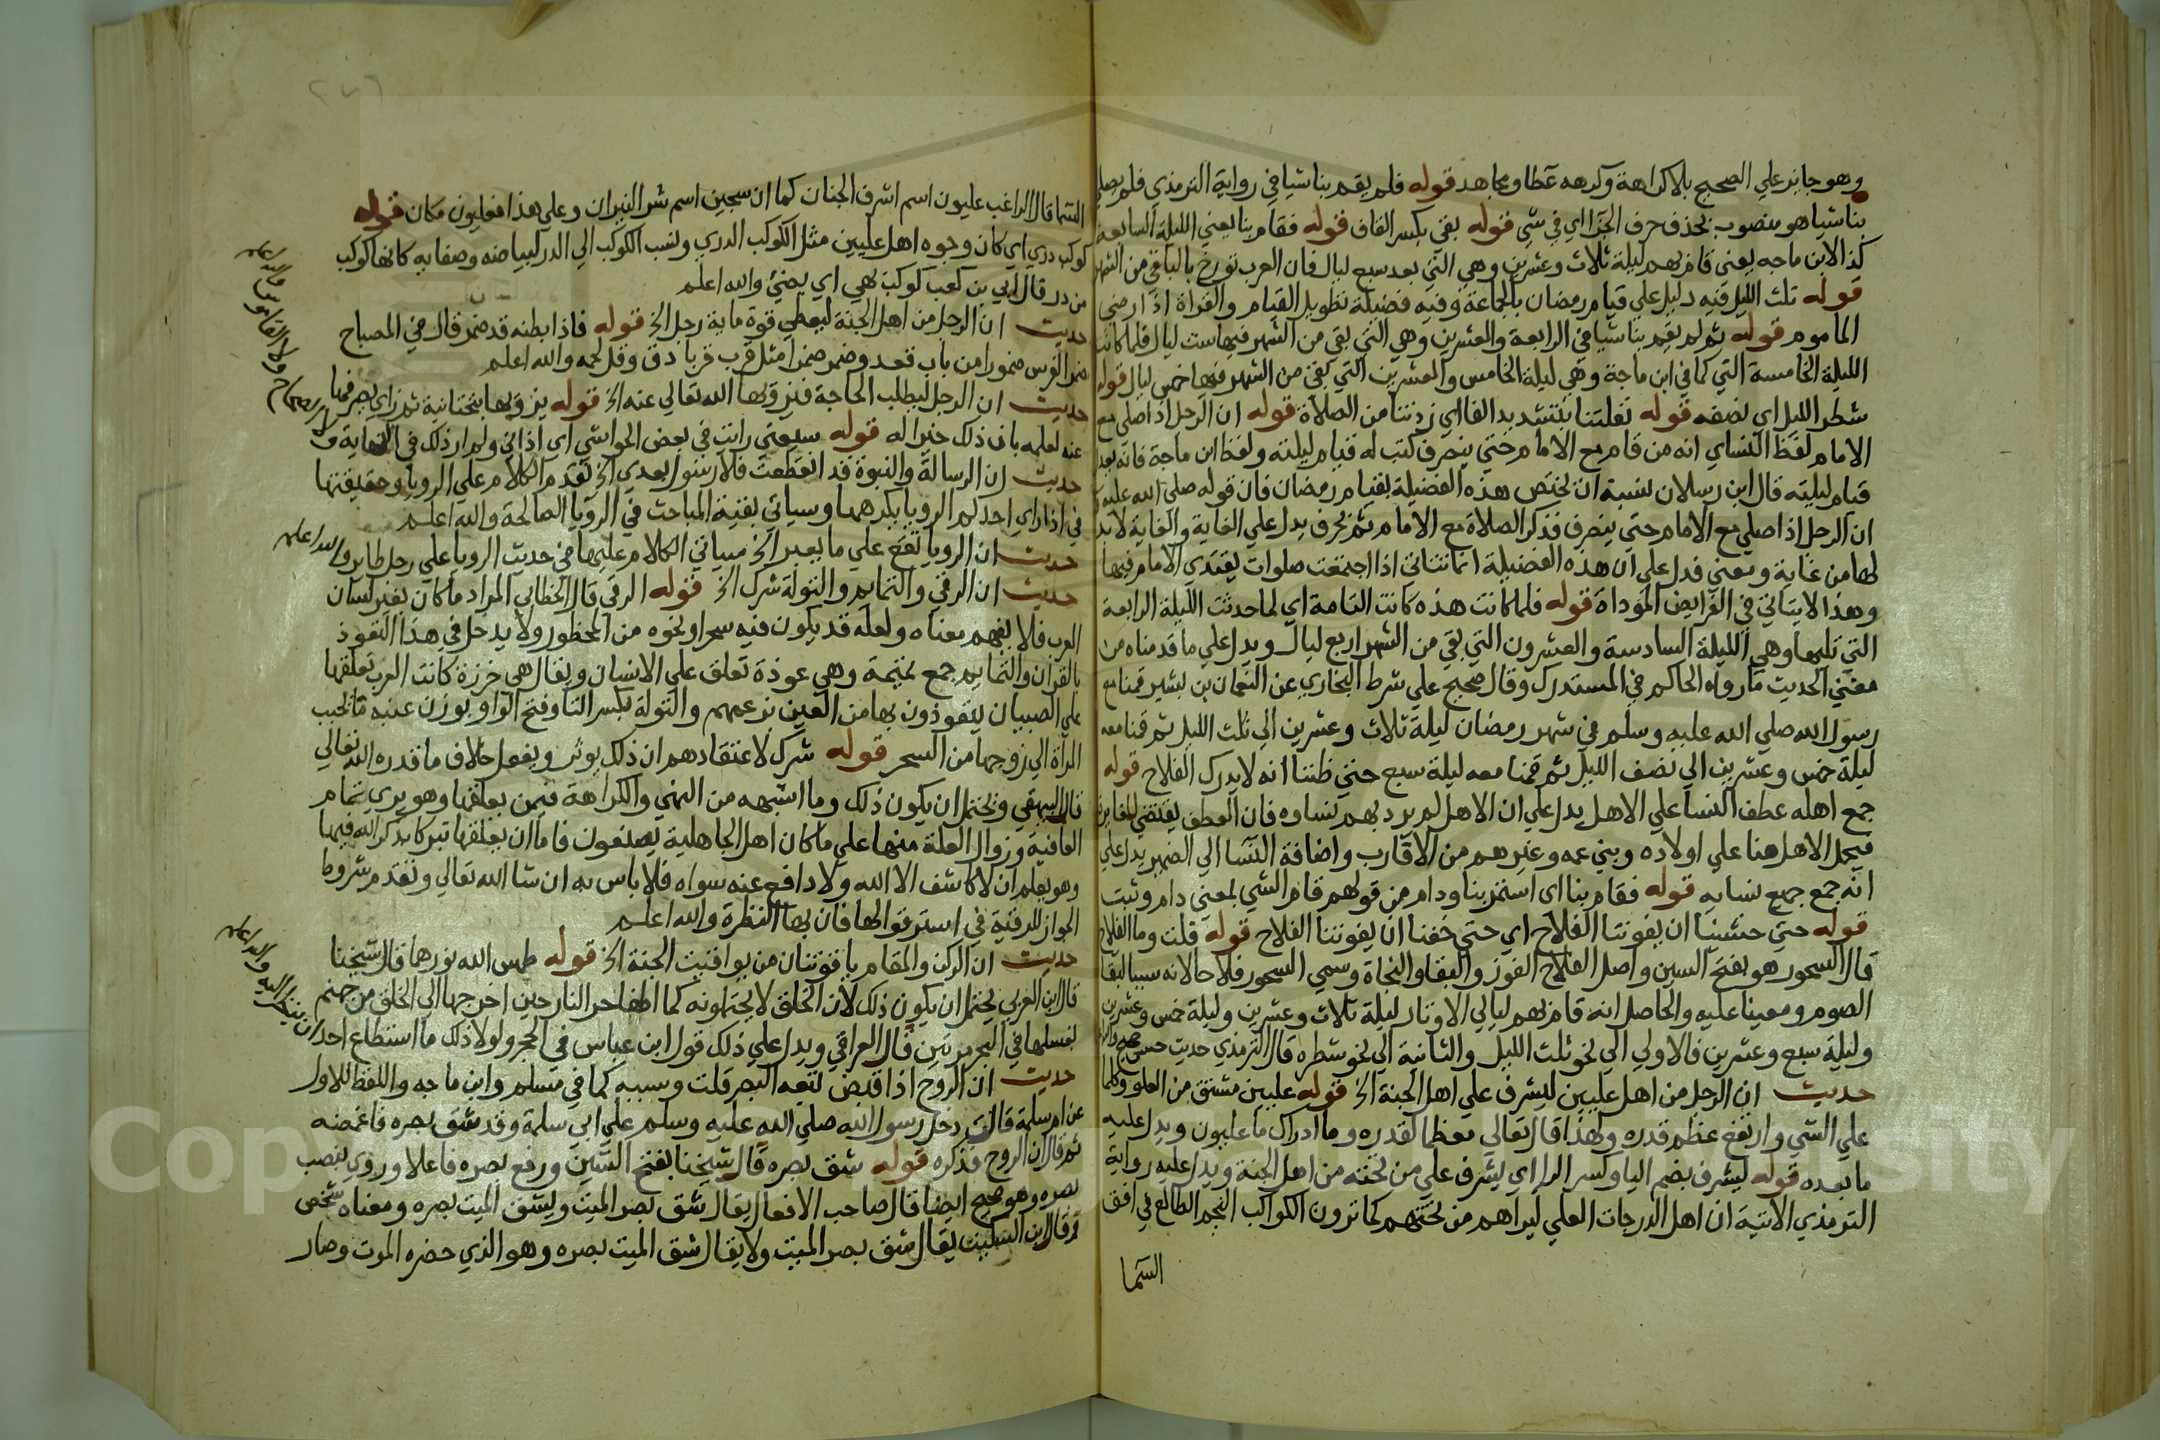 وهو جايز علي الصحيح بلا كراهة وكرهه عطا ومجاهد قوله فلم يقم بنا شيا في رواية الترمذي فلم يصلي
بنا شيا هو منصوب بحذف حرف الجر اي في شي قوله بقي بكسر القاف قوله فقام بنا يعني الليلة السابعة
كذا لابن ماجه يعني قام بهم ليلة ثلاث وعشرين وهي التي بعد سبع ليال فان العرب تورخ بالباقي من الشهر
قوله ثلث الليل فيه دليل علي قيام رمضان بالجماعة وفيه فضيلة تطويل القيام والقراة اذا رضي
الماموم قوله ثم لم يقم بنا شيا في الرابعة والعشرين وهي التي بقي من الشهر فيها ست ليال فلما كانت
الليلة الخامسة التي كما في ابن ماجة وهي ليلة الخامس والعشرين التي بقي من الشهر فيها خمس ليال قوله
شطر الليل اي نصفه قوله نفلتنا بتشديد الفا اي زدتنا من الصلاة قوله ان الرجل اذا صلي مع
الامام لفظ النساي انه من قام مع الامام حتي ينصرف كتب له قيام ليلته ولفظ ابن ماجة فانه يعدل
قيام ليلته قال ابن رسلان يشبه ان تختص هذه الفضيلة بقيام رمضان فان قوله صلي الله عليه
ان الرجل اذا صلي مع الامام حتي ينصرف فذكر الصلاة مع الامام ثم بحرف يدل علي الغاية والغاية لابد
لها من غاية ومعني فدل علي ان هذه الفضيلة انما تتاتي اذا اجتمعت صلوات يقتدي الامام فيها
وهذا لايتاتي في الفرايض الموداة قوله فلما كانت هذه كانت التامة اي لما حدثت الليلة الرابعة
التي تليها وهي الليلة السادسة والعشرون التي بقي من الشهر اربع ليال ويدل علي ما قدمناه من
معني الحديث ما رواه الحاكم في المستدرك وقال صحيح علي شرط البخاري عن النعمان بن بشير قمنا مع
رسول الله صلي الله عليه وسلم في شهر رمضان ليلة ثلاث وعشرين الي ثلث الليل ثم قمنا معه
ليلة خمس وعشرين الي نصف الليل ثم قمنا معه ليلة سبع حتي ظننا انه لا يدرك الفلاح قوله
جمع اهله عطف النسا علي الاهل يدل علي ان الاهل لم يرد بهم نساوه فان العطف يقتضي المغايرة
فيحمل الاهل هنا علي اولاده وبني عمه وغيرهم من الاقارب واضافة النسا الي الضمير يدل علي
انه جمع جميع نسايه قوله فقام بنا اي استمر بنا ودام من قولهم قام الشي بمعني دام وثبت
قوله حتي خشينا ان يفوتنا الفلاح اي حتي خفنا ان يفوتنا الفلاح قوله قلت وما الفلاح
قال السحور هو بفتح السين واصل الفلاح الفوز والبقا والنجاة وسمي السحور فلاحا لانه سببا لبقا
الصوم ومعينا عليه والحاصل انه قام بهم ليالي الاوتار ليلة ثلاث وعشرين وليلة خمس وعشرين
وليلة سبع وعشرين فالاولي الي نحو ثلث الليل والثانية الي نحو شطره قال الترمذي حديث حسن صحيح
حديث ان الرجل من اهل عليين ليشرف علي اهل الجنة الخ قوله عليين مشتق من العلو وكلما
علي الشي وارتفع عظم قدره ولهذا قال تعالي معظما لقدره وما ادراك ما عليون ويدل عليه
ما بعده قوله ليشرف بضم اليا وكسر الرا اي يشرف علي من تحته من اهل الجنة ويدل عليه رواية
الترمذي الاتية ان اهل الدرجات العلي ليراهم من تحتهم كما ترون الكواكب النجم الطالع في افق
السما
السما قال الراغب عليون اسم اشرف الجنان كما ان سجين اسم شر النيران وعلي هذا فعليون مكان قوله
كوكب دري اي كان وجوه اهل عليين مثل الكوكب الدري ونسب الكوكب الي الدر لبياضه وصفايه كانها كوكب
من در قال ابي بن كعب كوكب بهي اي يضي والله اعلم
حديث ان الرجل من اهل الجنة ليعطي قوة ماية رجل الخ قوله فاذا بطنه قد ضمر قال في المصباح
ضمر الفرس ضمورا من باب قعد وضمر ضمرا مثل قرب قربا دق وقل لحمه والله اعلم
حديث ان الرجل ليطلب الحاجة فيزويها الله تعالي عنه الخ قوله يزويها بتحتانية ثم زاي يصرفها
عنه لعلمه بان ذلك خيرا له قوله سبعني رايت في بعض الحواشي اي اذاني ولم ار ذلك في النهاية ولا
حديث ان الرسالة والنبوة قد انقطعت فلا رسول بعدي الخ تقدم الكلام علي الرويا وحقيقتها
في اذا راي احدكم الرويا يكرهها وسياتي بقية المباحث في الرويا الصالحة والله اعلم
حديث ان الرويا تقع علي ما يعبر الخ سياتي الكلام عليها في حديث الرويا علي رجل طاير والله اعلم
حديث ان الرقي والتمايم والتولة شرك الخ قوله الرقي قال الخطابي المراد ما كان بغير لسان
العرب فلا يفهم معناه ولعله قد يكون فيه سحرا ونحوه من المحظور ولا يدخل في هذا التعوذ
بالقران والتمايم جمع تميمة وهي عوذة تعلق علي الانسان ويقال هي خرزة كانت العرب تعلقها
علي الصبيان يتعوذون بها من العين بزعمهم والتولة بكسر التا وفتح الواو بوزن عنبه ما يحبب
المراة الي زوجها من السحر قوله شرك لاعتقادهم ان ذلك يوثر ويفعل خلاف ما قدره الله تعالي
قال البيهقي ويحتمل ان يكون ذلك وما اشبهه من النهي والكراهة فيمن يعلقها وهو يري تمام
العافية وزوال العلة منها علي ما كان اهل الجاهلية يصنعون فاما ان يعلقها تبركا بذكر الله فيها
وهو يعلم ان لا كاشف الا الله ولا دافع عنه سواه فلا باس به ان شا الله تعالي وتقدم شروط
الجواز للرقية في استرقوا لها فان بها النظرة والله اعلم
حديث ان الركن والمقام ياقوتتان من يواقيت الجنة الخ قوله طمس الله نورها قال شيخنا
قال ابن العربي يحتمل ان يكون ذلك لان الخلق لا يحتملونه كما اطفا حر النار حين اخرجها الي الخلق من جهنم
لغسلها في البحر مرتين قال العراقي ويدل علي ذلك قول ابن عباس في الحجر ولولا ذلك ما استطاع احد ان ينظر اليه والله اعلم
حديث ان الروح اذا قبض تبعه البصر قلت وسببه كما في مسلم وابن ماجه واللفظ للاول
عن ام سلمة قالت دخل رسول الله صلي الله عليه وسلم علي ابي سلمة وقد شق بصره فاغمضه
ثم قال ان الروح فذكره قوله شق بصره قال شيخنا بفتح الشين ورفع بصره فاعلا وروي بنصب
بصره وهو صحيح ايضا قال صاحب الافعال يقال شق بصر الميت ويشق الميت بصره ومعناه شخص
وقال ابن السكيت يقال شق بصر الميت ولا يقال شق الميت بصره وهو الذي حضره الموت وصار